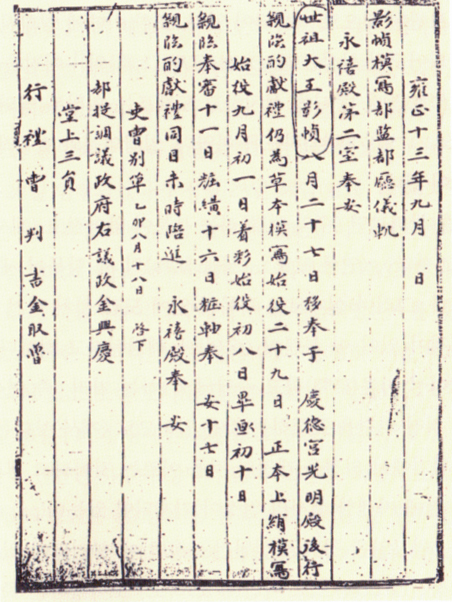 雍正十三年九月 日
影幀模寫都監都廳儀軌
永禧殿第二室奉安
世祖大王影幀八月二十七日移奉于 慶德宮光明殿後行
親臨酌獻禮仍為草本模寫始役二十九日 正本上綃模寫
始役九月初一日着彩始役初八日畢畫初十日
親臨奉審十一日粧䌙十六日粧軸奉 安十七日
親臨酌獻禮同日未時陪進 永禧殿奉 安
吏曹別單 乙卯八月十八日 啓下
都提調議政府右議政金興慶
堂上三員
行禮曹判書金取魯